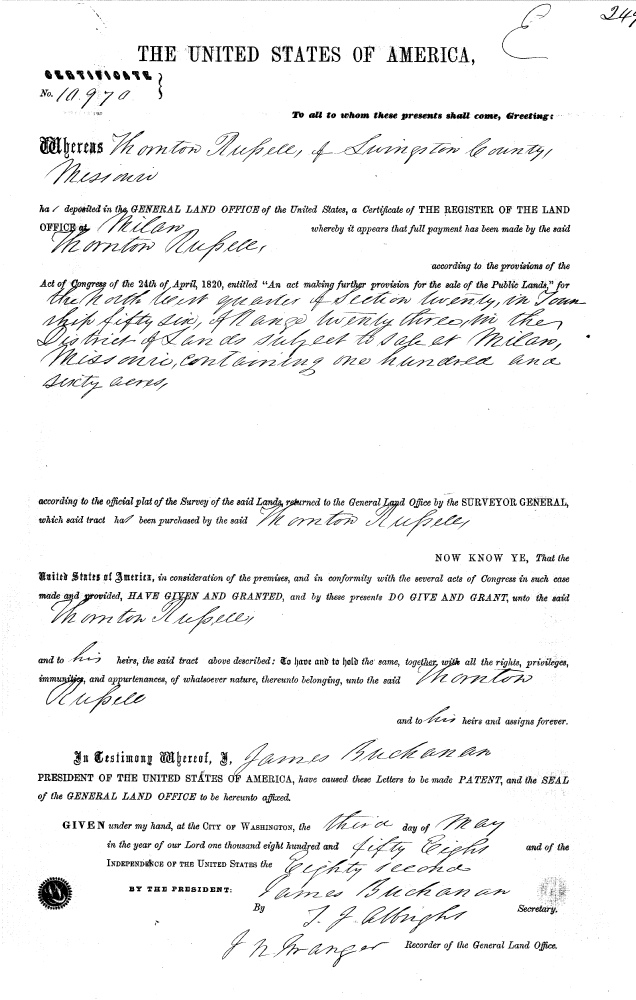 E 249
THE UNITED STATES OF AMERICA,
CERTIFICATE
No. 10.970
To all to whom these presents shall come, Greeting:
Whereas Thornton Russell, of Livingston County,
Missouri
has deposited in the GENERAL LAND OFFICE of the United States, a Certificate of THE REGISTER OF THE LAND
OFFICE at Milan whereby it appears that full payment has been made by the said
Thornton Russell,
according to the provisions of the
Act of Congress of the 24th of April, 1820, entitled "An act making further provision for the sale of the Public Lands," for
the North West quarter of Section twenty, in Town
ship fifty six, of Range twenty three, in the
District of Lands subject to sale at Milan,
Missouri, containing one hundred and
sixty acres,
according to the official plat of the Survey of the said Lands, returned to the General Land Office by the SURVEYOR GENERAL,
which said tract has been purchased by the said Thornton Russell,
NOW KNOW YE, That the
United States of America, in consideration of the premises, and in conformity with the several acts of Congress in such case
made and provided, HAVE GIVEN AND GRANTED, and by these presents DO GIVE AND GRANT, unto the said
Thornton Russell,
and to his heirs, the said tract above described: To have and to hold the same, together with all the rights, privileges,
immunities, and appurtenances, of whatsoever nature, thereunto belonging, unto the said Thornton
Russell
and to his heirs and assigns forever.
In Testimony Whereof, I, James Buchanan
PRESIDENT OF THE UNITED STATES OF AMERICA, have caused these Letters to be made PATENT, and the SEAL
of the GENERAL LAND OFFICE to be hereunto affixed.
GIVEN under my hand, at the CITY OF WASHINGTON, the third day of May
in the year of our Lord one thousand eight hundred and fifty Eight and of the
INDEPENDENCE OF THE UNITED STATES the Eighty second
BY THE PRESIDENT: James Buchanan
By T. J. Albright Secretary.
J N Granger Recorder of the General Land Office.